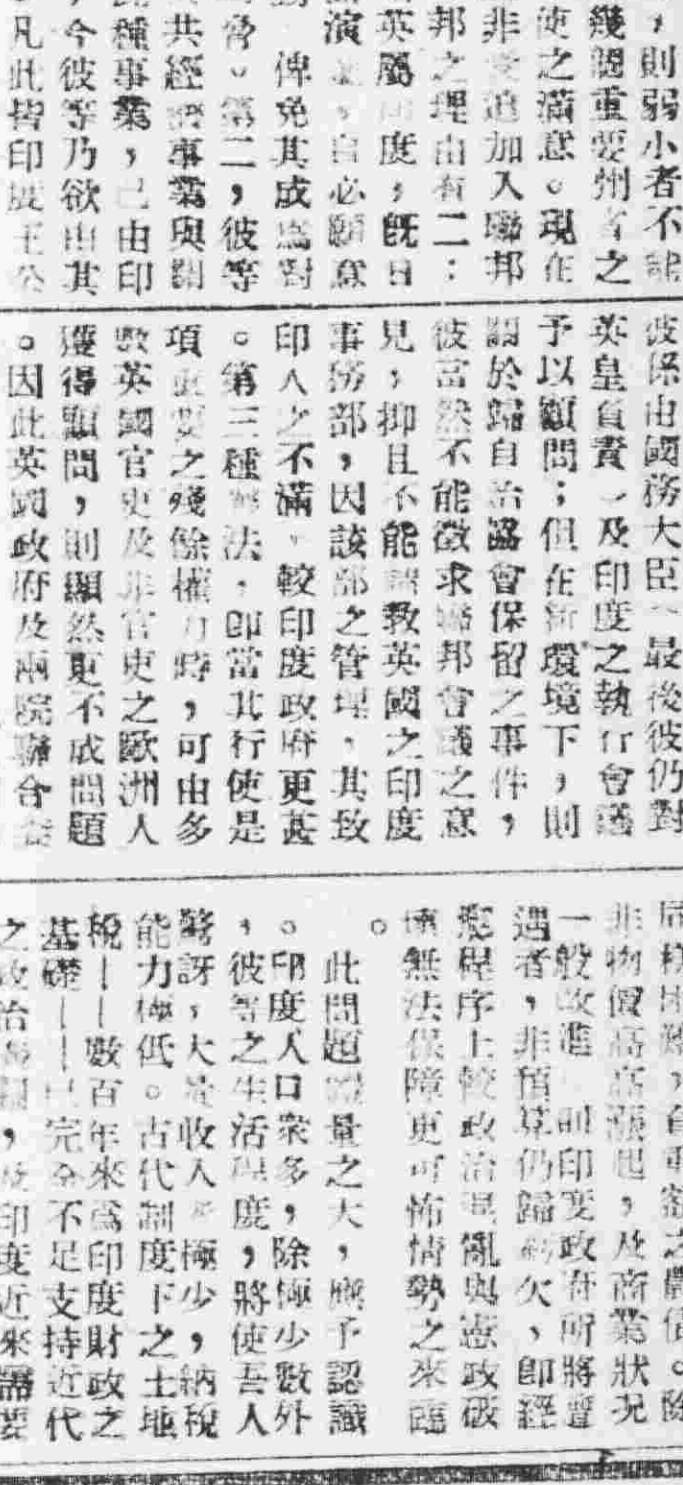 ，則弱小者不
幾個重要州省之
使之滿意。現在
非受迫加入聯邦
邦之理由有二：
英屬印度，既日
演，自必願意
俾免其成為對
脅。第二，彼等
共經濟事業與關
種事業，已由印
今彼等乃欲由其
凡此皆印度王公
彼係由國務大臣一最後彼仍對
英皇負責一及印度之執行會議
予以顧問；但在新環境下，則
關於歸自治協會保留之事件，
彼當然不能徵求聯邦會議之意
見，抑且不能請教英國之印度
事務部，因該部之管理，其致
印人之不滿，較印度政府更甚
。第三種辦法，即當其行使是
項重要之殘餘權力時，可由多
數英國官吏及非官吏之歐洲人
獲得顧問，則顯然更不成問題
。因此英國政府及兩院聯合委
同樣困難，負重額之農債。除
非物價高高漲起，及商業狀況
一般改進 則印度政府所將遭
遇者，非預算仍歸虧欠，即經
憲程序上較政治混亂與憲政破
壞無法保障更可怖情勢之來臨
。
此問題 量之大，應予認識
。印度人口衆多，除極少數外
，彼等之生活程度，將使吾人
驚訝，大量收入者極少，納稅
能力極低。古代制度下之土地
稅——數百年來為印度財政之
基礎——已完全不足支持近代
之政治 ，及印度近來需要